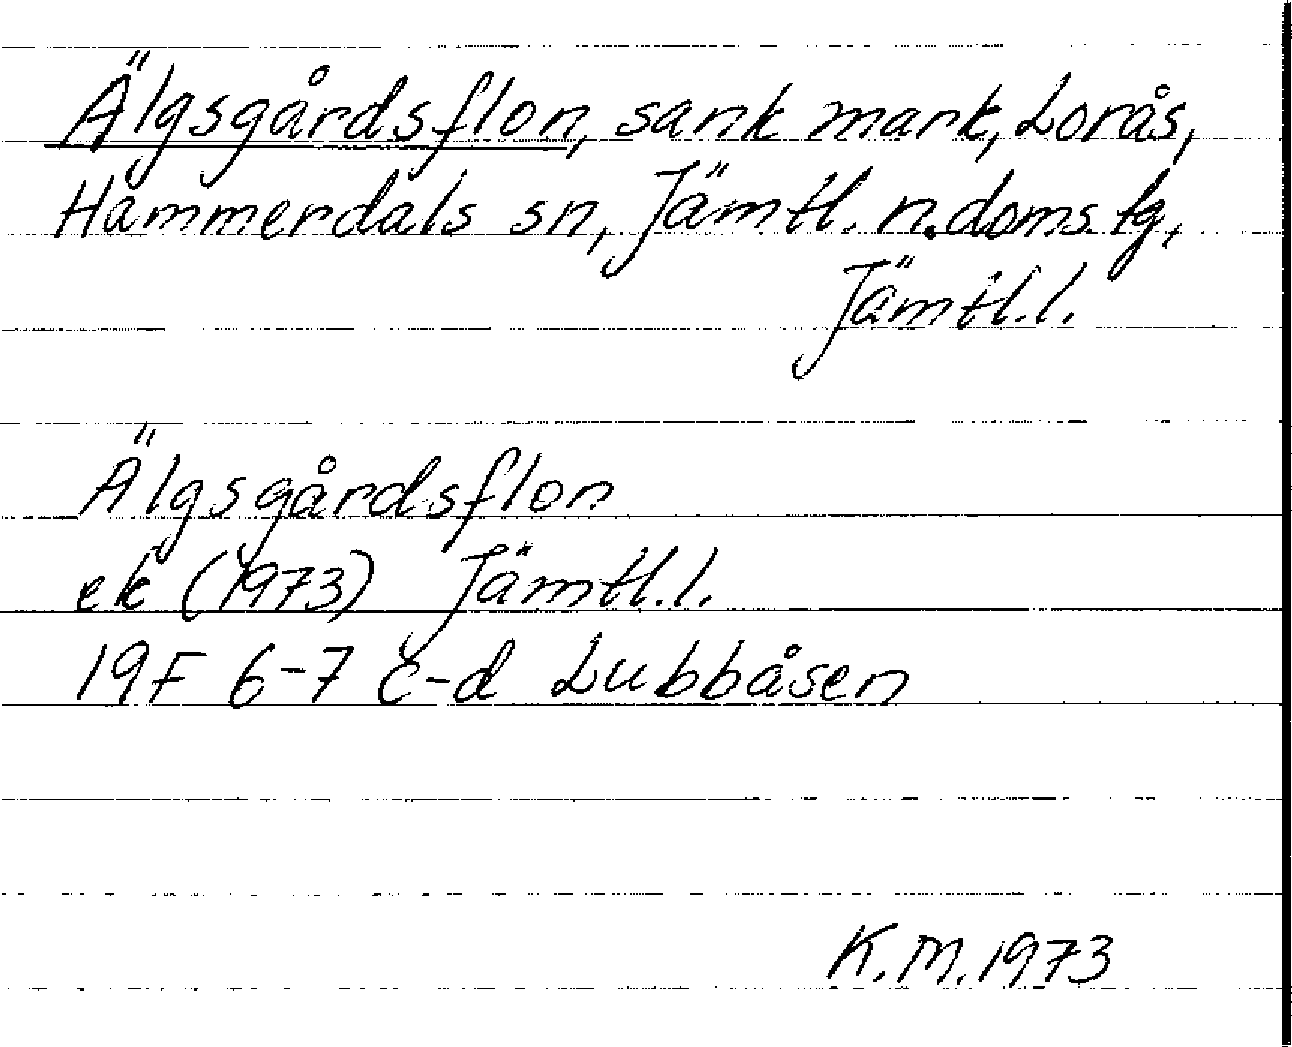 Älgsgårdsflon, sank mark, Lorås,
Hammerdals sn, Jämtl. n. doms. lg,
Jämtl.l.
Älgsgårdsflon
ek (1973) Jämtl.l.
19F 6-7 c-d Lubbåsen
K.M. 1973